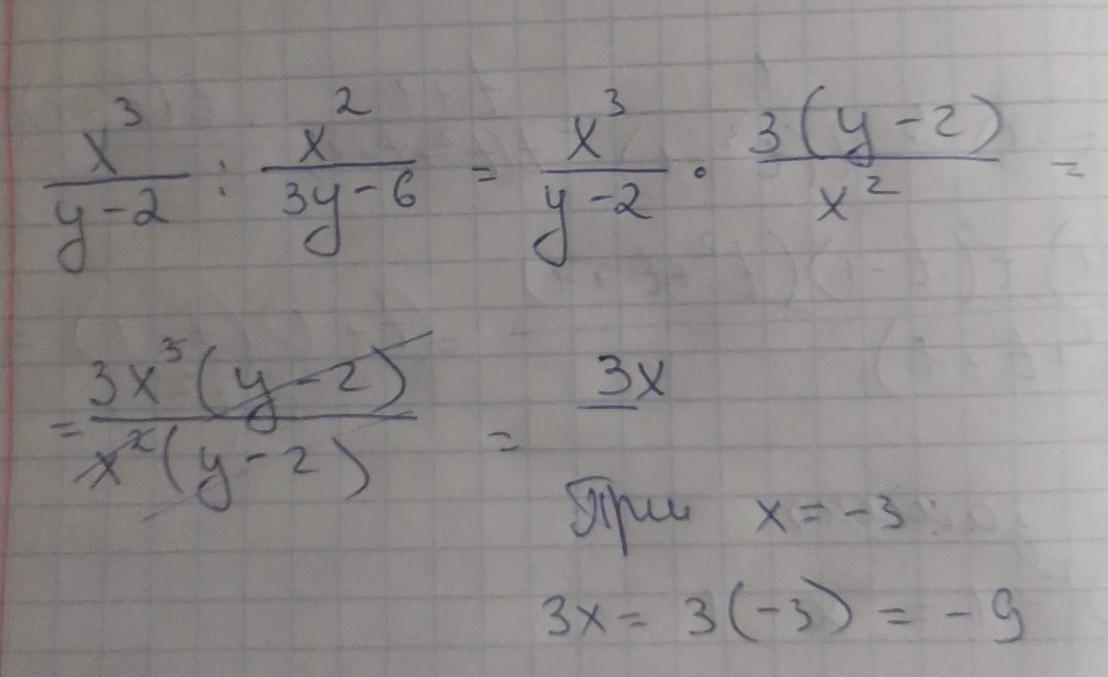 x³/(y-2) : x²/(3y-6) = x³/(y-2) · 3(y-2)/x² =
= 3x³(y-2)/x²(y-2) = 3x
При x=-3:
3x= 3(-3) = -9